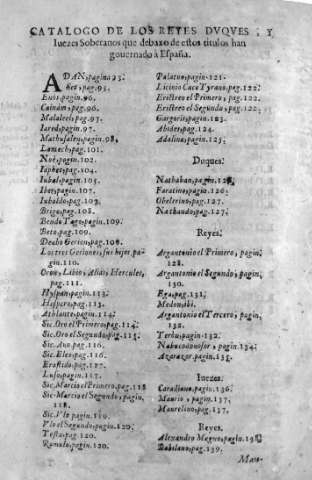 CATALOGO DE LOS REYES DVQVES, Y
Iuezes Soberanos que debaxo de estos titulos han
gouernado à España.
ADAN, pagina 23.
pag.95.
Enos pagin.96.
Cainam, pag.96.
Malaleel, pag.97.
Iared, pagin.97.
Mathusalen, pagin.98.
Lamech, pag.101.
Noè, pagin.102.
Iaphet, pag.104.
Iubal, pagin.105.
Iber, pagin.107.
Iubalda, pag.109.
Brigo, pag.108.
Bendo Tago, pagin.109.
Beto, pag.109.
Deabo Gerion, pag.109.
Los tres Geriones, sus hijos, pa-
gin.110.
Oron, Libio, Alias, Hercules,
pag.111.
Hyspan, pagin.113.
Hespero, pag.113.
Athlante, pagin.114.
Sic. Oro el Primero, pag.114.
Sic. Oro el Segundo, pag.115.
Sic. Ano pag.116.
Sic. Eleo, pag.116.
pag.117.
Luso, pagin.117.
Sic. Marcio el Primero, pag.118
Sic. Marcio el Segundo, pagin.
118.
Sic. Vlo pagin.119.
Vlo el Segundo, pagin.120.
Testa, pag.120.
Romulo, pagin.120.
Palatuo, pagin.121.
Licinio Caco Tyrano, pag.122.
Eritreo el Primero, pag.122.
Eritreo el Segundo, pag.122.
Gargoris, pagin.123.
Abides, pag.124.
Adelina, pagin.125.
Duques.
Nathaban, pagin.126.
Faratino, pagin.126.
Obelerino, pag.127.
Nathando, pag.127.
Reyes.
Argantonio el Primero, pagin.
128.
Argantonio el Segundo, pagin.
130.
Ega, pag.131.
Medon, ibi.
Argantonio el Tercero, pagin.
132.
Terbu, pagin.132.
Nabucodonosor, pagin.134.
Azarazor, pagin.135.
Iuezes.
Caradiano, pagin.136.
Maurio, pagin.137.
Maurelino, pag.137.
Reyes.
Alexandro Magno, pagin.138
Babilano, pag.139.
T
Man-